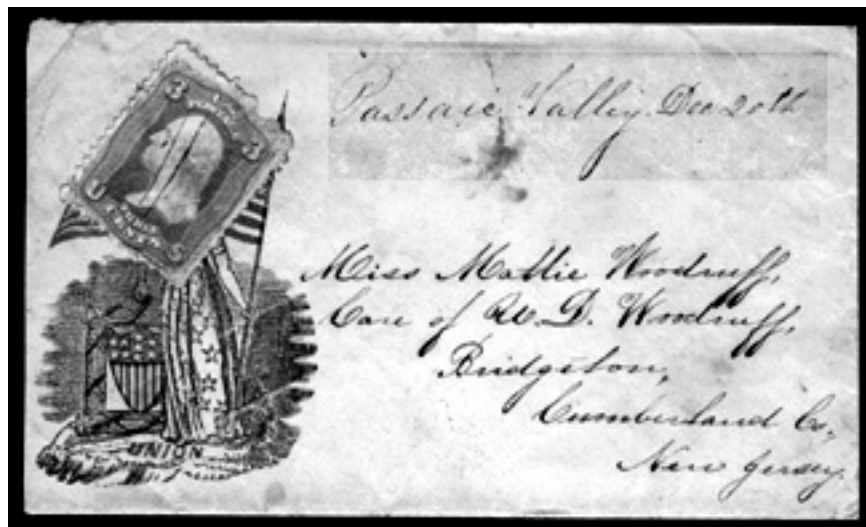 Passaic Valley Dec 20th
Miss Mattie Woodruff,
Care of W. D. Woodruff,
Bridgeton,
Cumberland Co,
New Jersey.
3 3
UNION